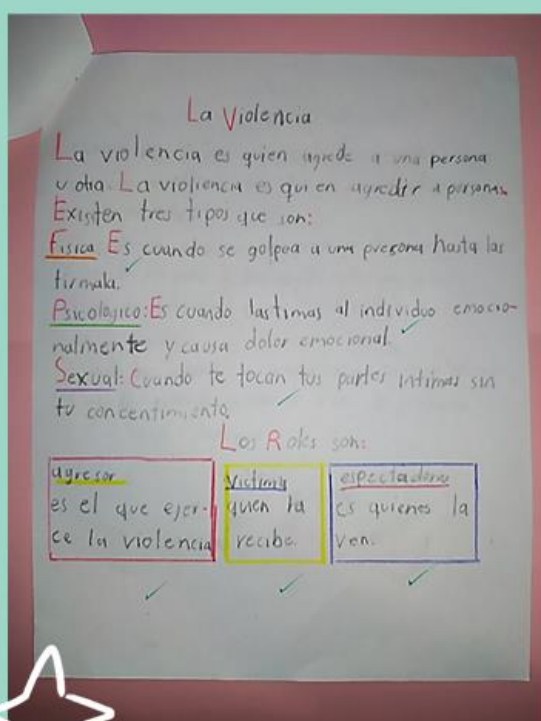 La Violencia
La violencia es quien agrede a una persona
u otra. La violiencia es quien agredir a personas.
Existen tres tipos que son:
Fisica Es cuando se golpea a una presona hasta las
tirmala.
Psicologico: Es cuando lastimas al individuo emocio-
nalmente y causa dolor emocional.
Sexual: Cuando te tocan tus partes intimas sin
tu concentimiento.
Los Roles son:
agresor
es el que ejer-
ce la violencia
victima
quien la
recibe.
espectadores
es quienes la
ven.